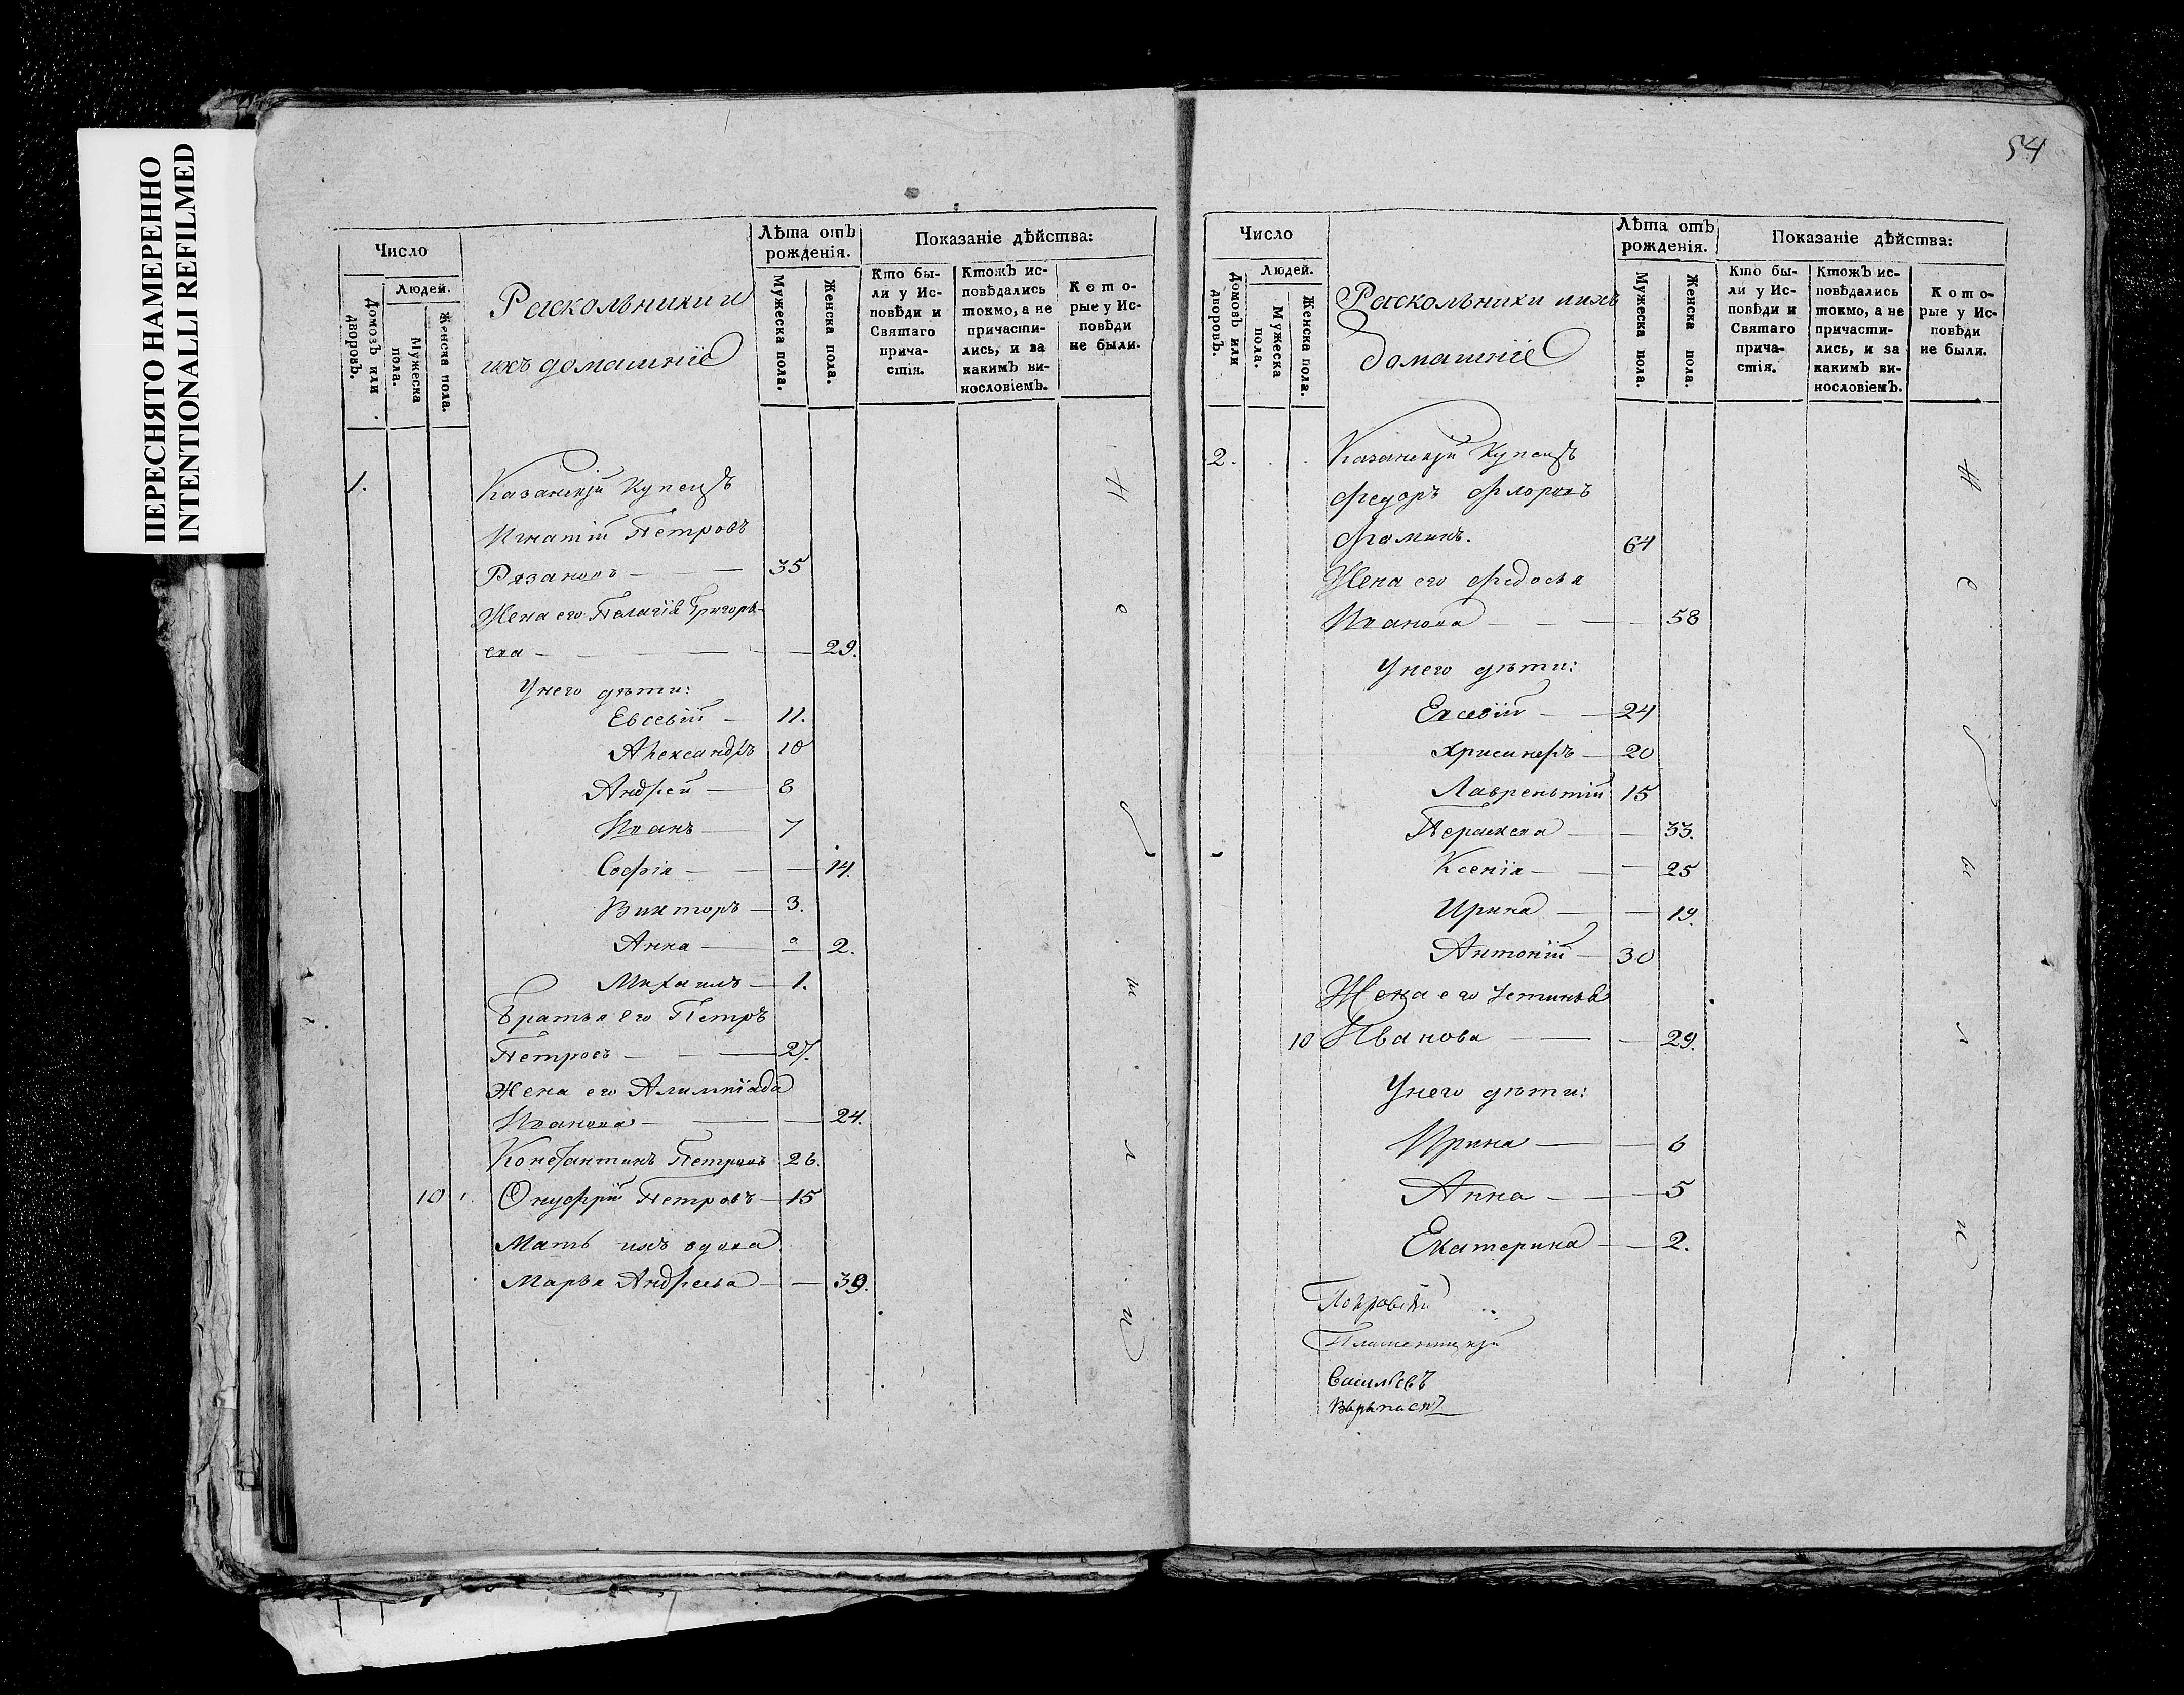 ПЕРЕСНЯТО НАМЕРЕННО
INTENTIONALLI REFILMED
Число
Людей.
Домовъ или дворовъ.
Мужеска пола.
Женска пола.
Раскольники и
ихъ домашніе
Лѣта отъ рожденія.
Мужеска пола.
Женска пола.
Показаніе дѣйства:
Кто бы-
ли у Ис-
повѣди и
Святаго
прича-
стія.
Ктожъ ис-
повѣдались
токмо, а не
причасти-
лись, и за
какимъ ви-
нословіемъ.
Кото-
рые у Ис-
повѣди
не были.
1. Казанскій Купецъ
Игнатій Петровъ
Рязановъ — 35
Жена его Пелагія Григорь-
ева — 29.
У него дѣти:
Евсевій — 11.
Александръ 10
Андрей — 8
Иванъ — 7
Софія — 14.
Викторъ — 3.
Анна — 2.
Михаилъ — 1.
Братья его Петръ
Петровъ — 27.
Жена его Алимпіада
Иванова — 24.
Константинъ Петровъ 26.
10 Онуфрій Петровъ — 15
Мать ихъ вдова
Марья Андреева — 39.
Не были
54
Число
Людей.
Домовъ или дворовъ.
Мужеска пола.
Женска пола.
Раскольники и ихъ
домашніе
Лѣта отъ рожденія.
Мужеска пола.
Женска пола.
Показаніе дѣйства:
Кто бы-
ли у Ис-
повѣди и
Святаго
прича-
стія.
Ктожъ ис-
повѣдались
токмо, а не
причасти-
лись, и за
какимъ ви-
нословіемъ.
Кото-
рые у Ис-
повѣди
не были.
2. Казанскій Купецъ
Федоръ Флоровъ
Фоминъ. 64
Жена его Федосья
Иванова — 58
У него дѣти:
Евсевій — 24
Хрисанфъ — 20
Лаврентій 15
Параскева — 33.
Ксенія — 25
Ирина — 19.
Антоній — 30
Жена его Устинья
10 Иванова — 29.
У него дѣти:
Ирина — 6
Анна — 5
Екатерина — 2.
Не были
Покровскій
Васильевъ